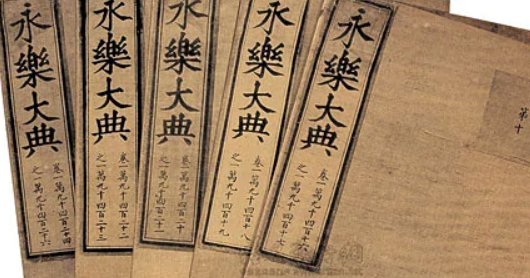 第十
永樂大典
卷一萬九千四百十六
之一萬九千四百十七
永樂大典
卷一萬九千四百十八
之一萬九千四百十九
永樂大典
卷一萬九千四百二十
之一萬九千四百二十一
永樂大典
卷一萬九千四百二十二
之一萬九千四百二十三
永樂大典
卷一萬九千四百二十四
之一萬九千四百二十六